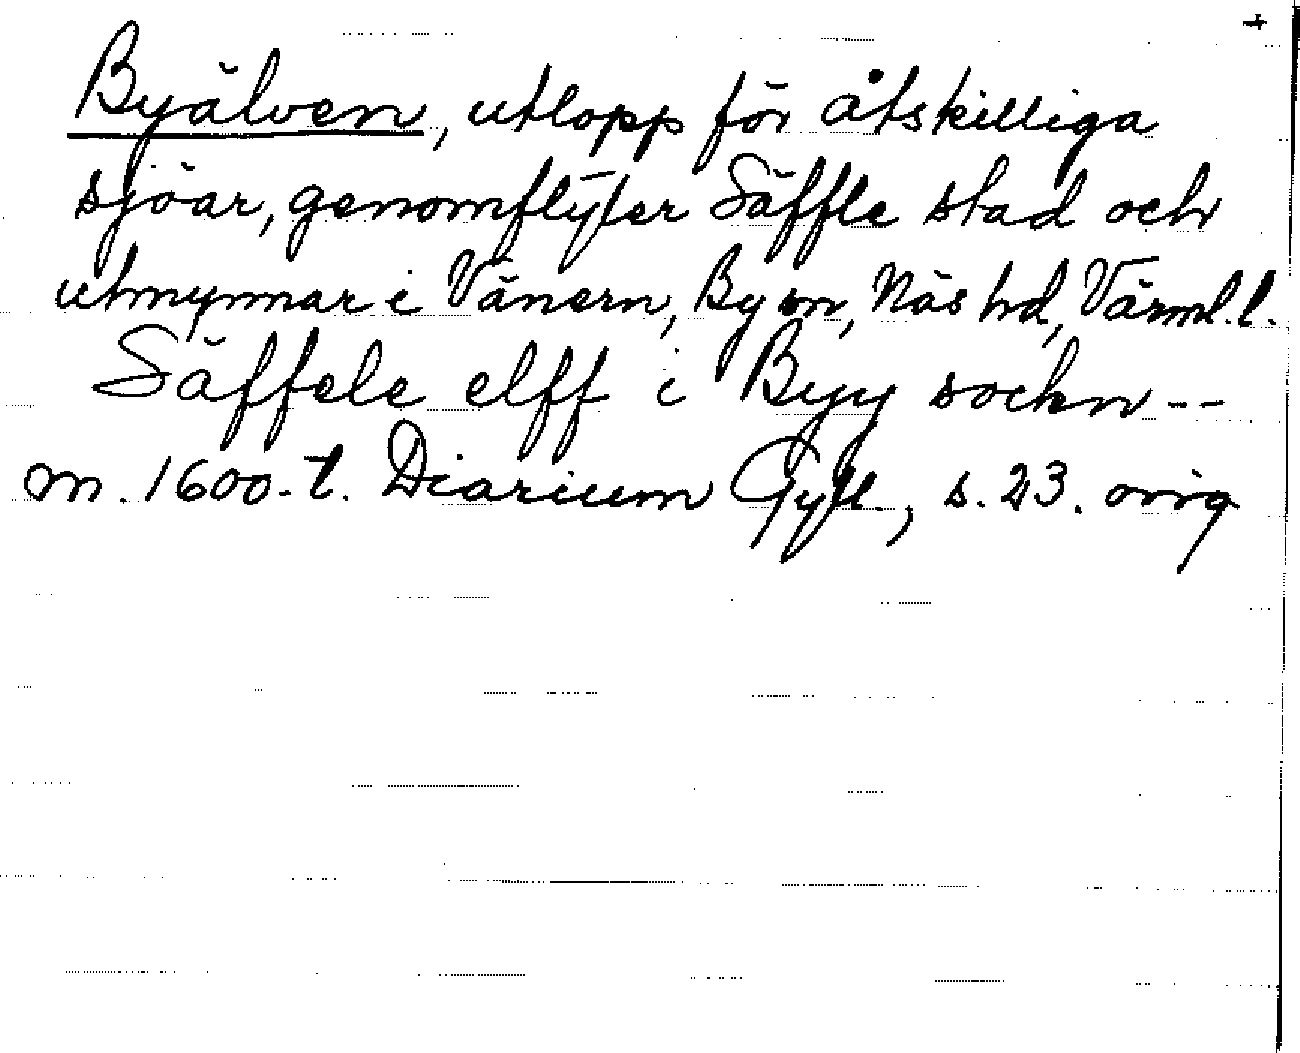 Byälven, utlopp för åtskilliga
sjöar, genomflyter Säffle stad och
utmynnar i Vänern, By sn, Näs hd, Värml. l.
Säffele elff i Byy sockn --
m. 1600-t. Diarium Gyll., s. 23. orig